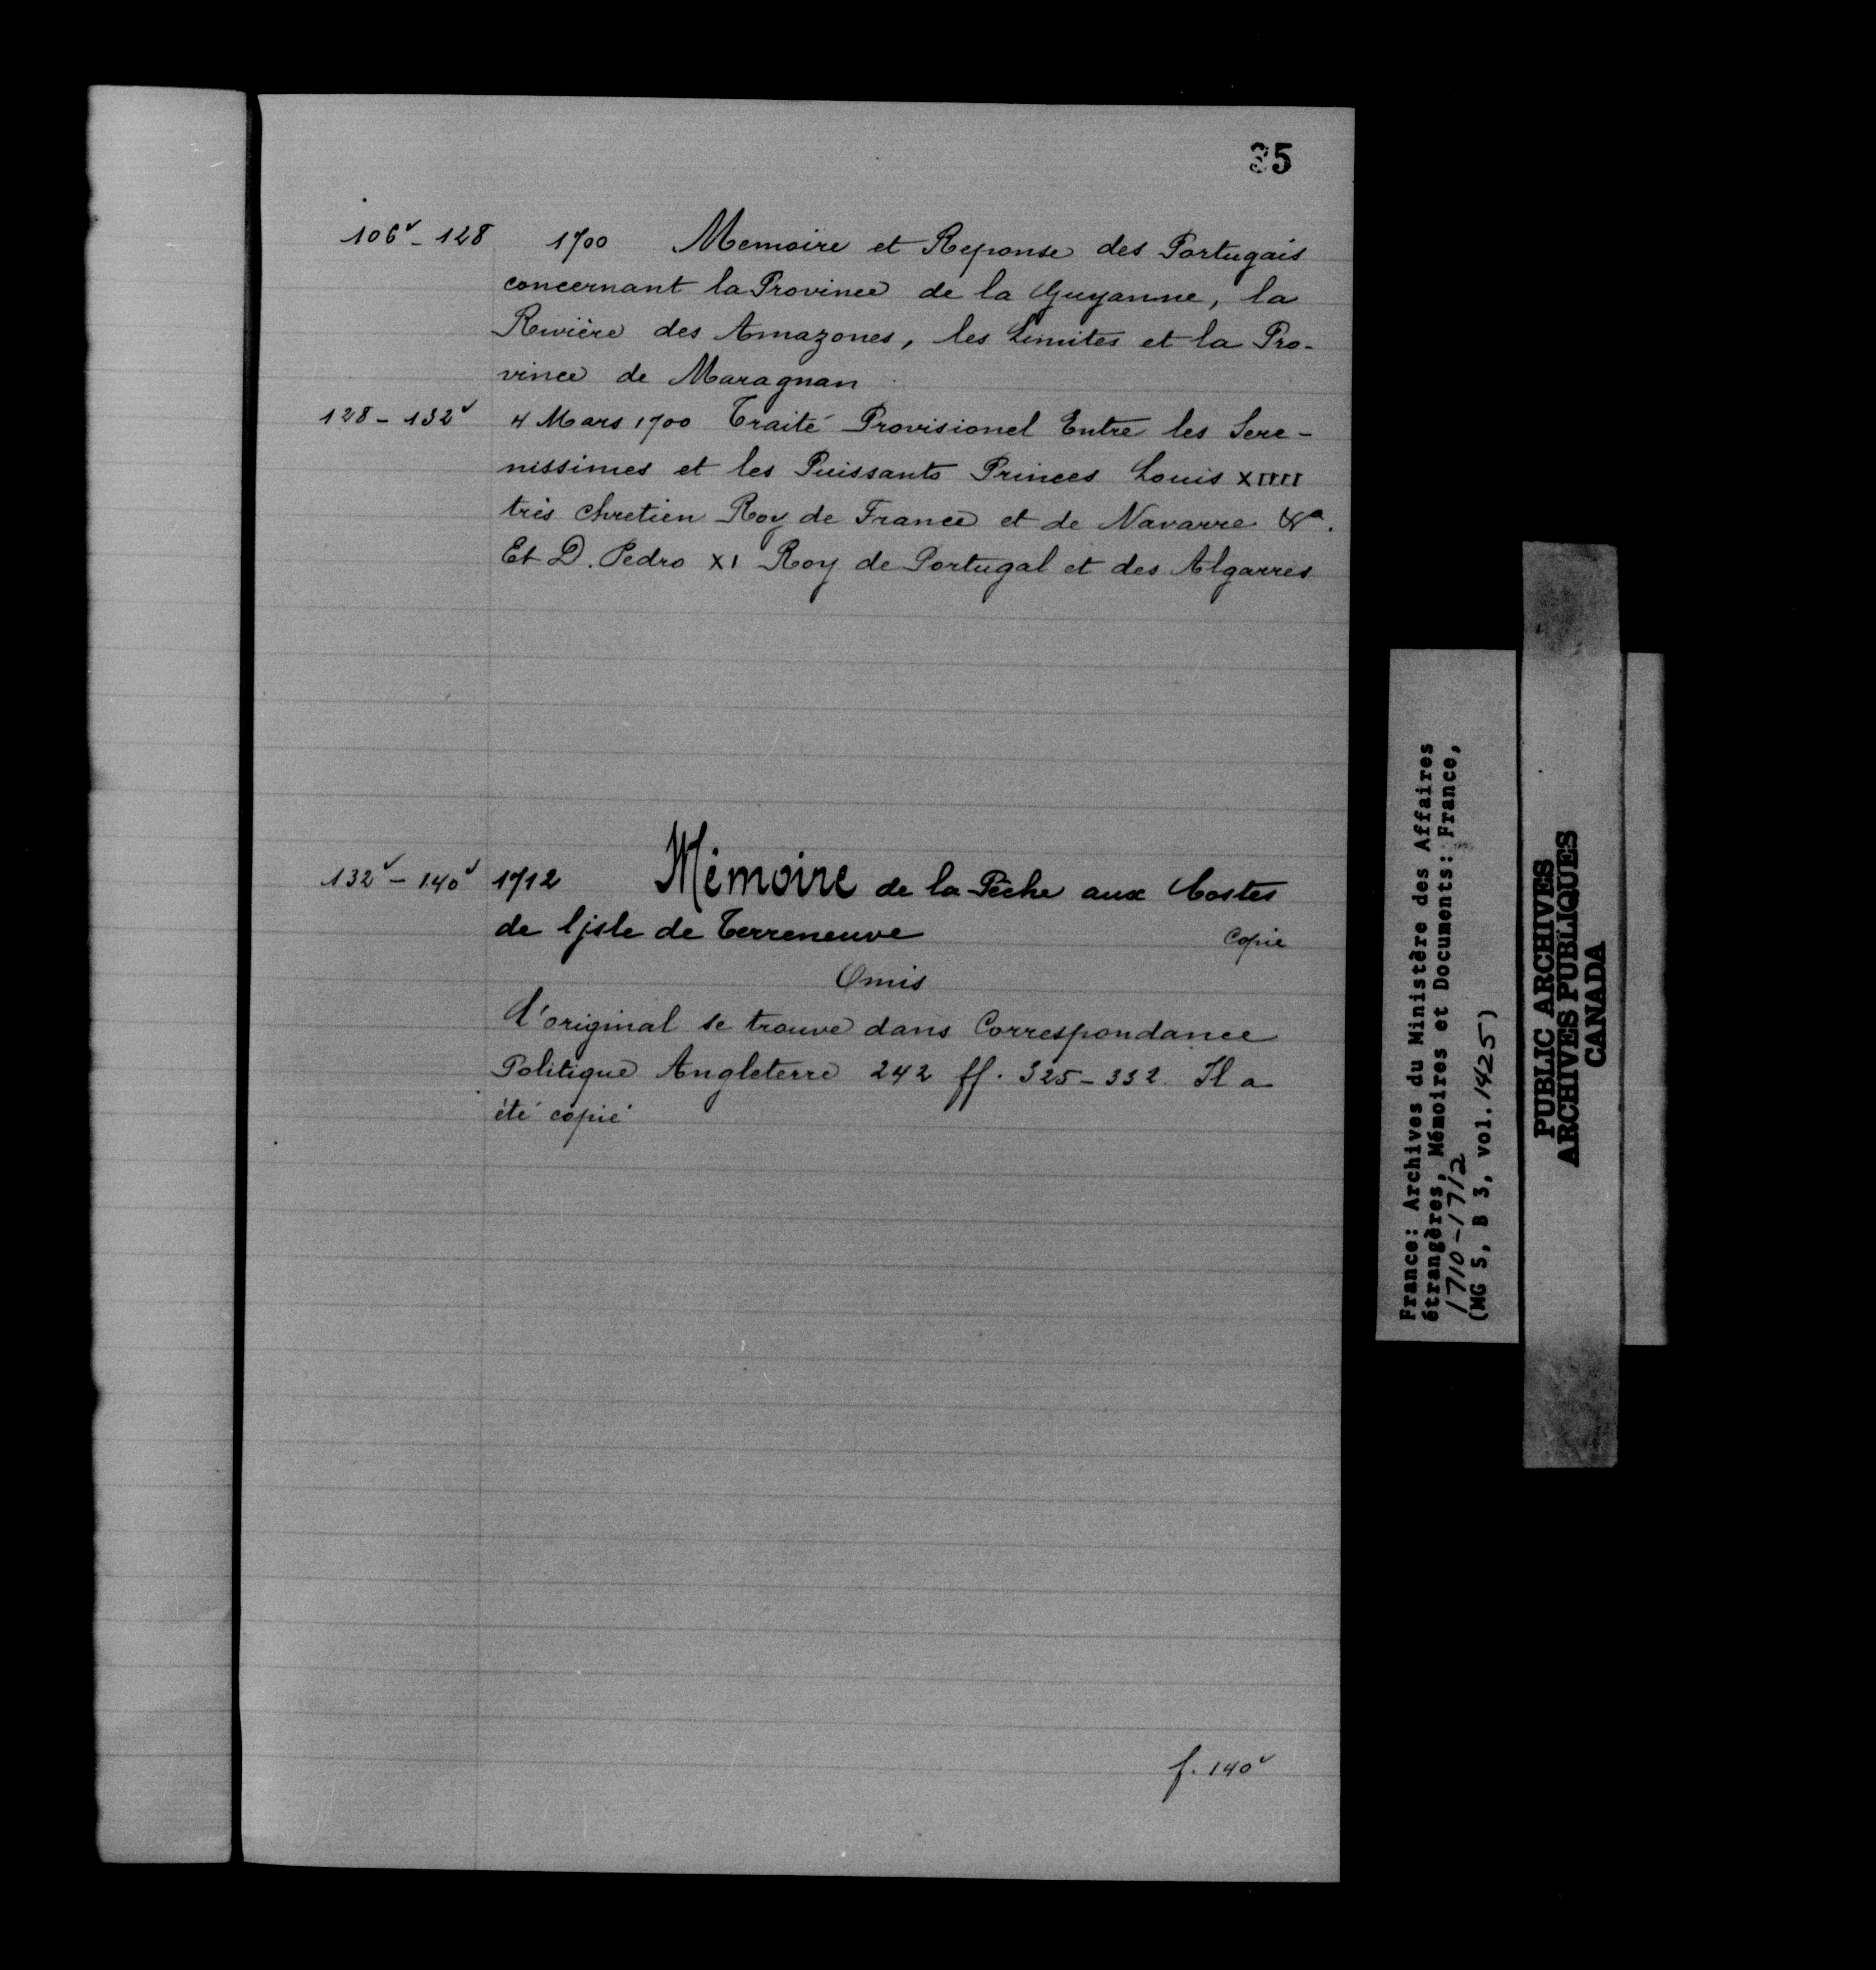 35
106ᵛ - 128 1700 Memoire et Reponse des Portugais
concernant la Province de la Guyanne, la
Rivière des Amazones, les Limites et la Pro-
vince de Maragnan
128 - 132ᵛ 4 Mars 1700 Traité Provisionel Entre les Sere-
nissimes et les Puissants Princes Louis XIIII
très chretien Roy de France et de Navarre &ᵃ.
Et D. Pedro XI Roy de Portugal et des Algarres
132ᵛ - 140ᵛ 1712 Mémoire de la Pêche aux Costes
de ljsle de Terreneuve Copie
Omis
L'original se trouve dans Correspondance
Politique Angleterre 242 ff. 325-332. Il a
été copié
f. 140ᵛ
France: Archives du Ministère des Affaires
étrangères, Mémoires et Documents: France,
1710-1712
(MG 5, B 3, vol. 1425)
PUBLIC ARCHIVES
ARCHIVES PUBLIQUES
CANADA